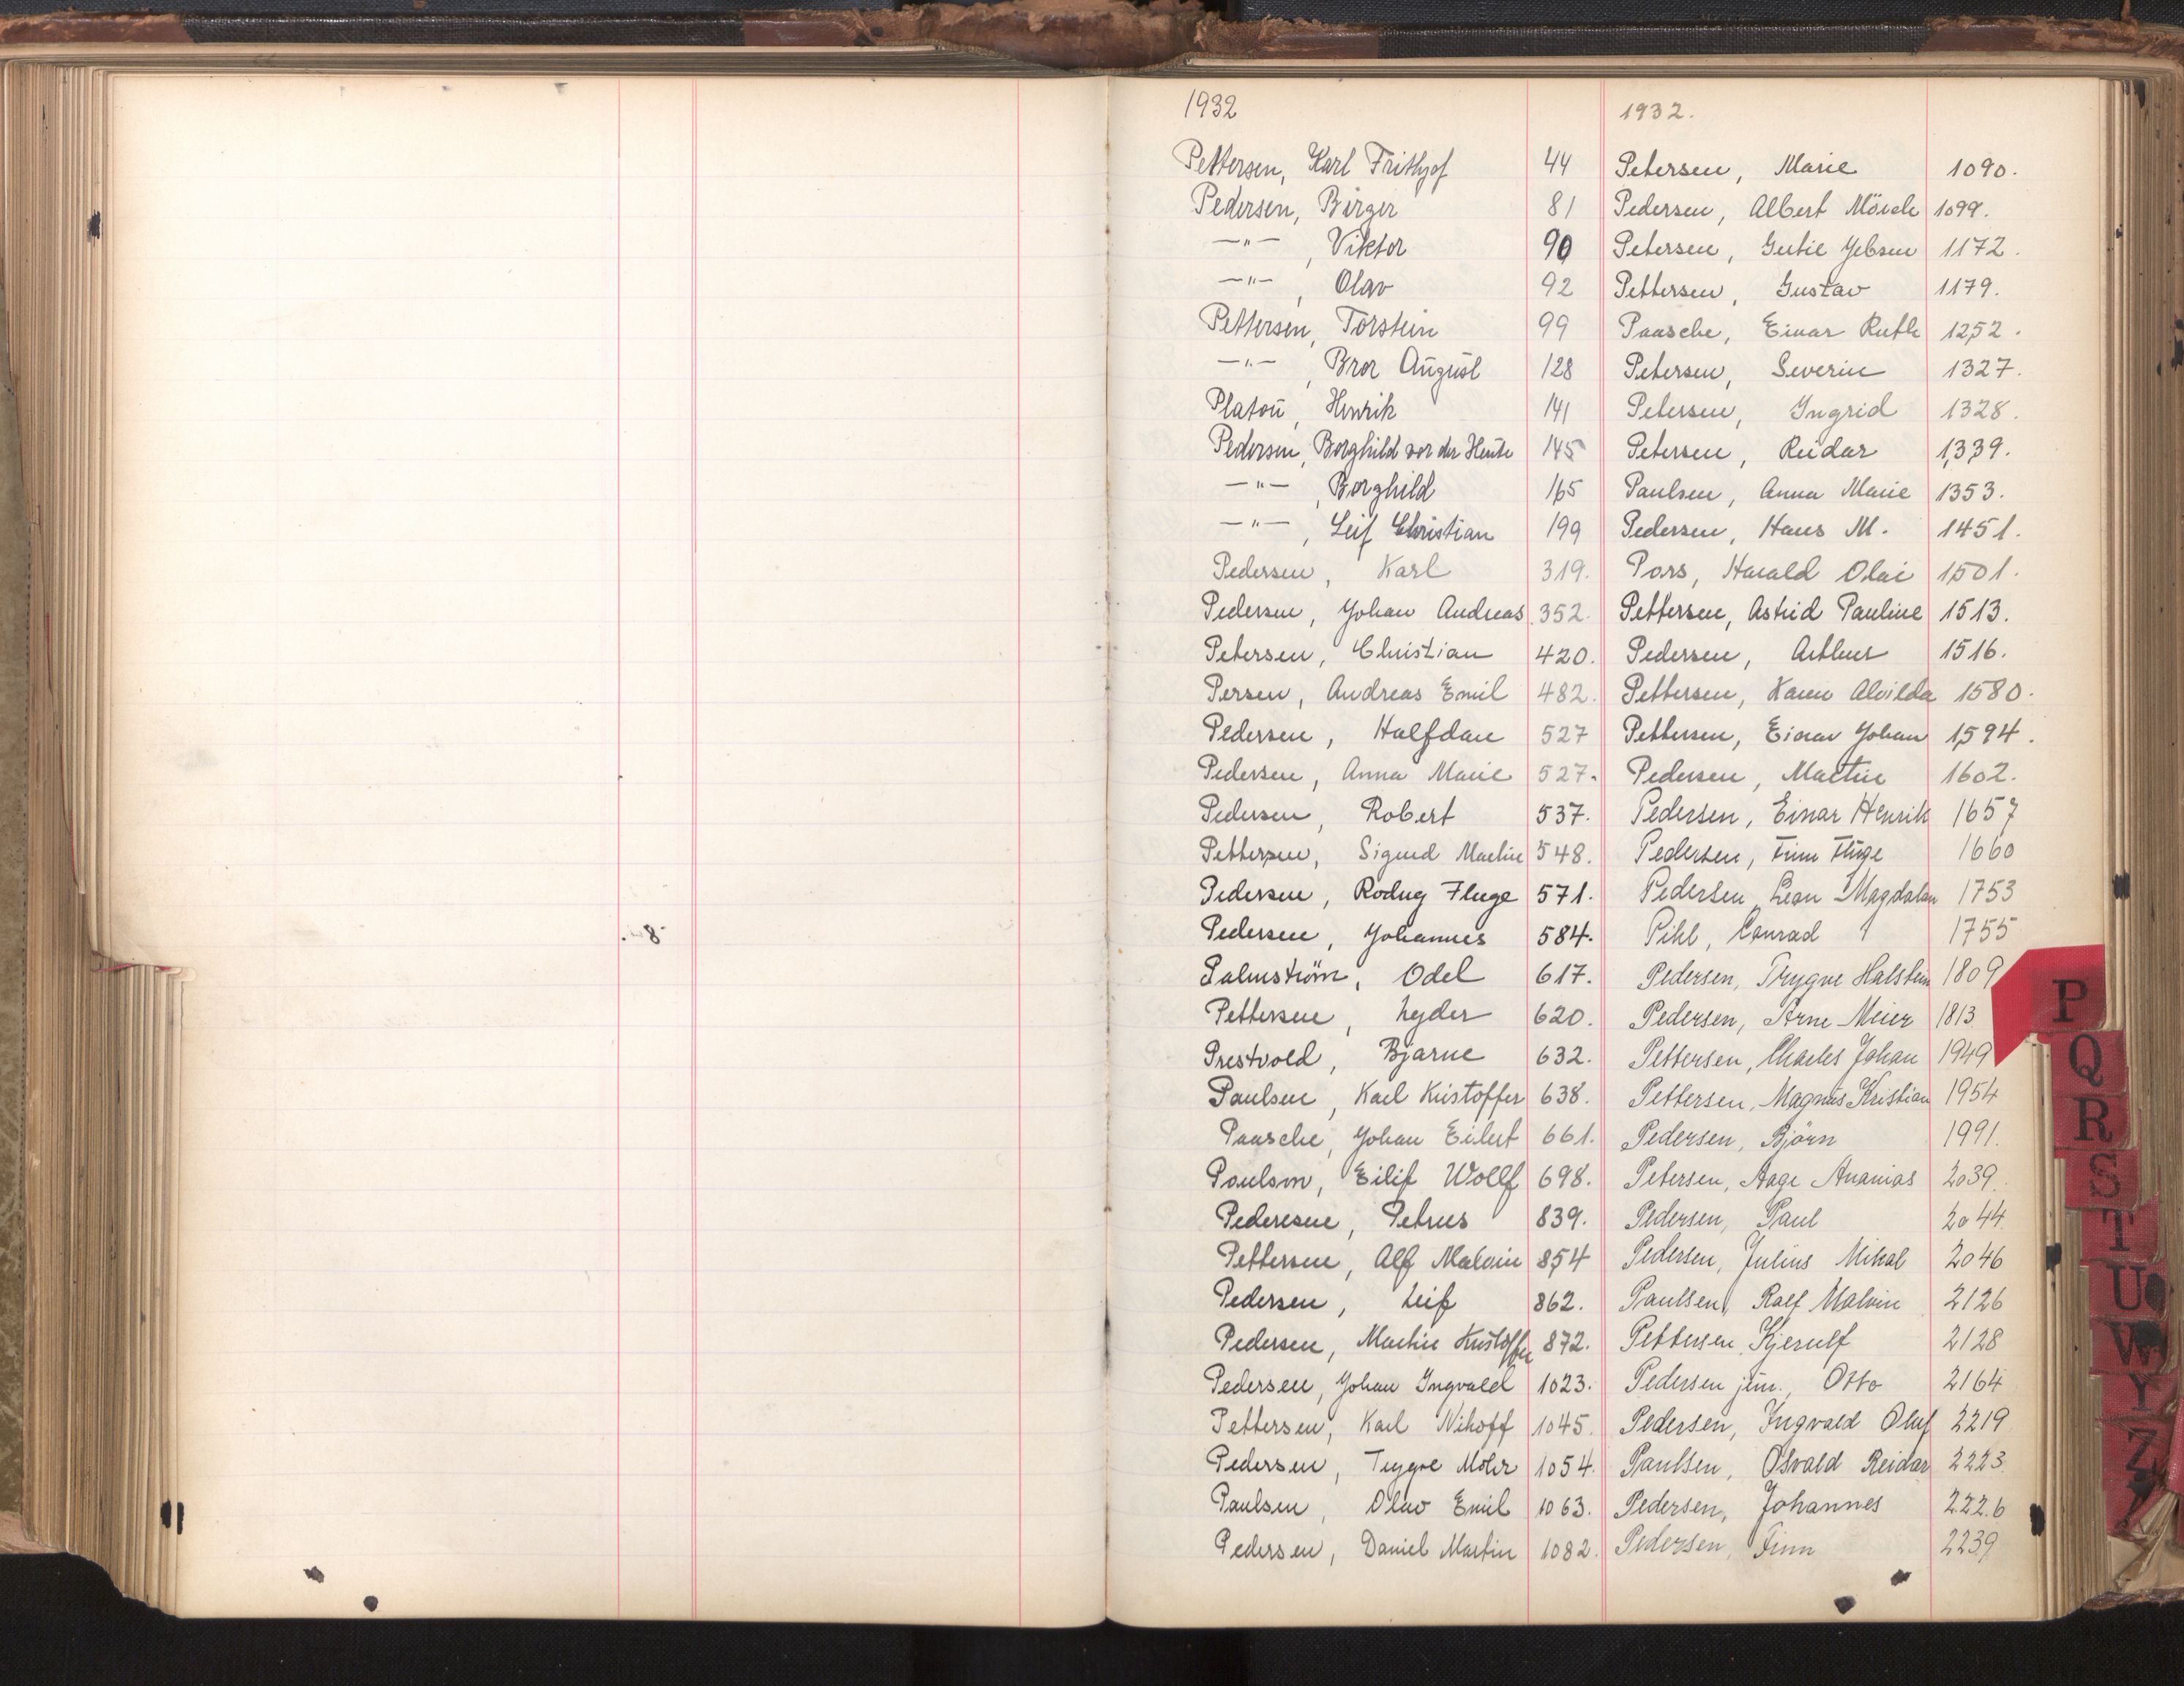 1932
Pettersen, Karl Frithjof 44
Pedersen, Birger 81
—"— , Viktor 90
—"— , Olav 92
Pettersen, Torstein 99
—"— , Bror August 128
Platou, Henrik 141
Pedersen, Borghild von der Heute 145
—"— , Borghild 165
—"— , Leif Christian 199
Pedersen, Karl 319.
Pedersen, Johan Andreas 352.
Petersen, Christian 420.
Persen, Andreas Emil 482.
Pedersen, Halfdan 527
Pedersen, Anna Marie 527.
Pedersen, Robert 537.
Pettersen, Sigurd Martin 548.
Pedersen, Rodny Fluge 571.
Pedersen, Johannes 584.
Palmström, Odel 617.
Pettersen, Lyder 620.
Prestvold, Bjarne 632.
Paulsen, Karl Kristoffer 638.
Paasche, Johan Eilert 661.
Poulson, Eilif Wollf 698.
Pederesen, Petrus 839.
Pettersen, Alf Malvin 854
Pedersen, Leif 862.
Pedersen, Martin Kristoffer 872.
Pedersen, Johan Ingvald 1023.
Pettersen, Karl Nikoff 1045.
Pedersen, Trygve Mohr 1054.
Paulsen, Olav Emil 1063.
Pedersen, Daniel Martin 1082.
1932.
Petersen, Marie 1090.
Pedersen, Albert Mörch 1099.
Petersen, Gutie Jebsen 1172.
Pettersen, Gustav 1179.
Paasche, Einar Ruth 1252.
Petersen, Severin 1327.
Petersen, Ingrid 1328.
Petersen, Reidar 1339.
Paulsen, Anna Marie 1353.
Pedersen, Hans M. 1451.
Pors, Harald Olai 1501.
Pettersen, Astrid Pauline 1513.
Pedersen, Arthur 1516.
Pettersen, Karen Alvilda 1580.
Pettersen, Einar Johan 1594.
Pedersen, Martin 1602.
Pedersen, Einar Henrik 1657
Pedersen, Finn Fluge 1660
Pedersen, Magdalan 1753
Pihl, Conrad 1755
Pedersen, Trygve Halstein 1809
Pedersen, Arne Meier 1813
Pettersen, Charles Johan 1949
Pettersen, Magnus Kristian 1954
Pedersen, Björn 1991.
Petersen, Aage Ananias 2039.
Pedersen, Paul 2044.
Pedersen, Julius Mikal 2046
Paulsen, Ralf Malvin 2126
Pettersen, Kjerulf 2128
Pedersen jun., Otto 2164
Pedersen, Ingvald Oluf 2219
Paulsen, Osvald Reidar 2223.
Pedersen, Johannes 2226
Pedersen, Finn 2239.
P
Q
R
S
T
U
W
Y
Z